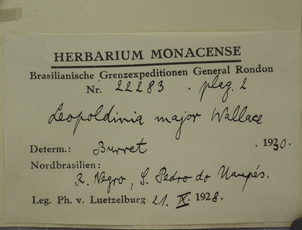 HERBARIUM MONACENSE
Brasilianische Grenzexpeditionen General Rondon
Nr. 22283 . plag. 2
Leopoldinia major Wallace
Determ.: Burret . 1930.
Nordbrasilien:
R. Negro, S. Pedro do Uaupés.
Leg. Ph. v. Luetzelburg 21. IX. 1928.